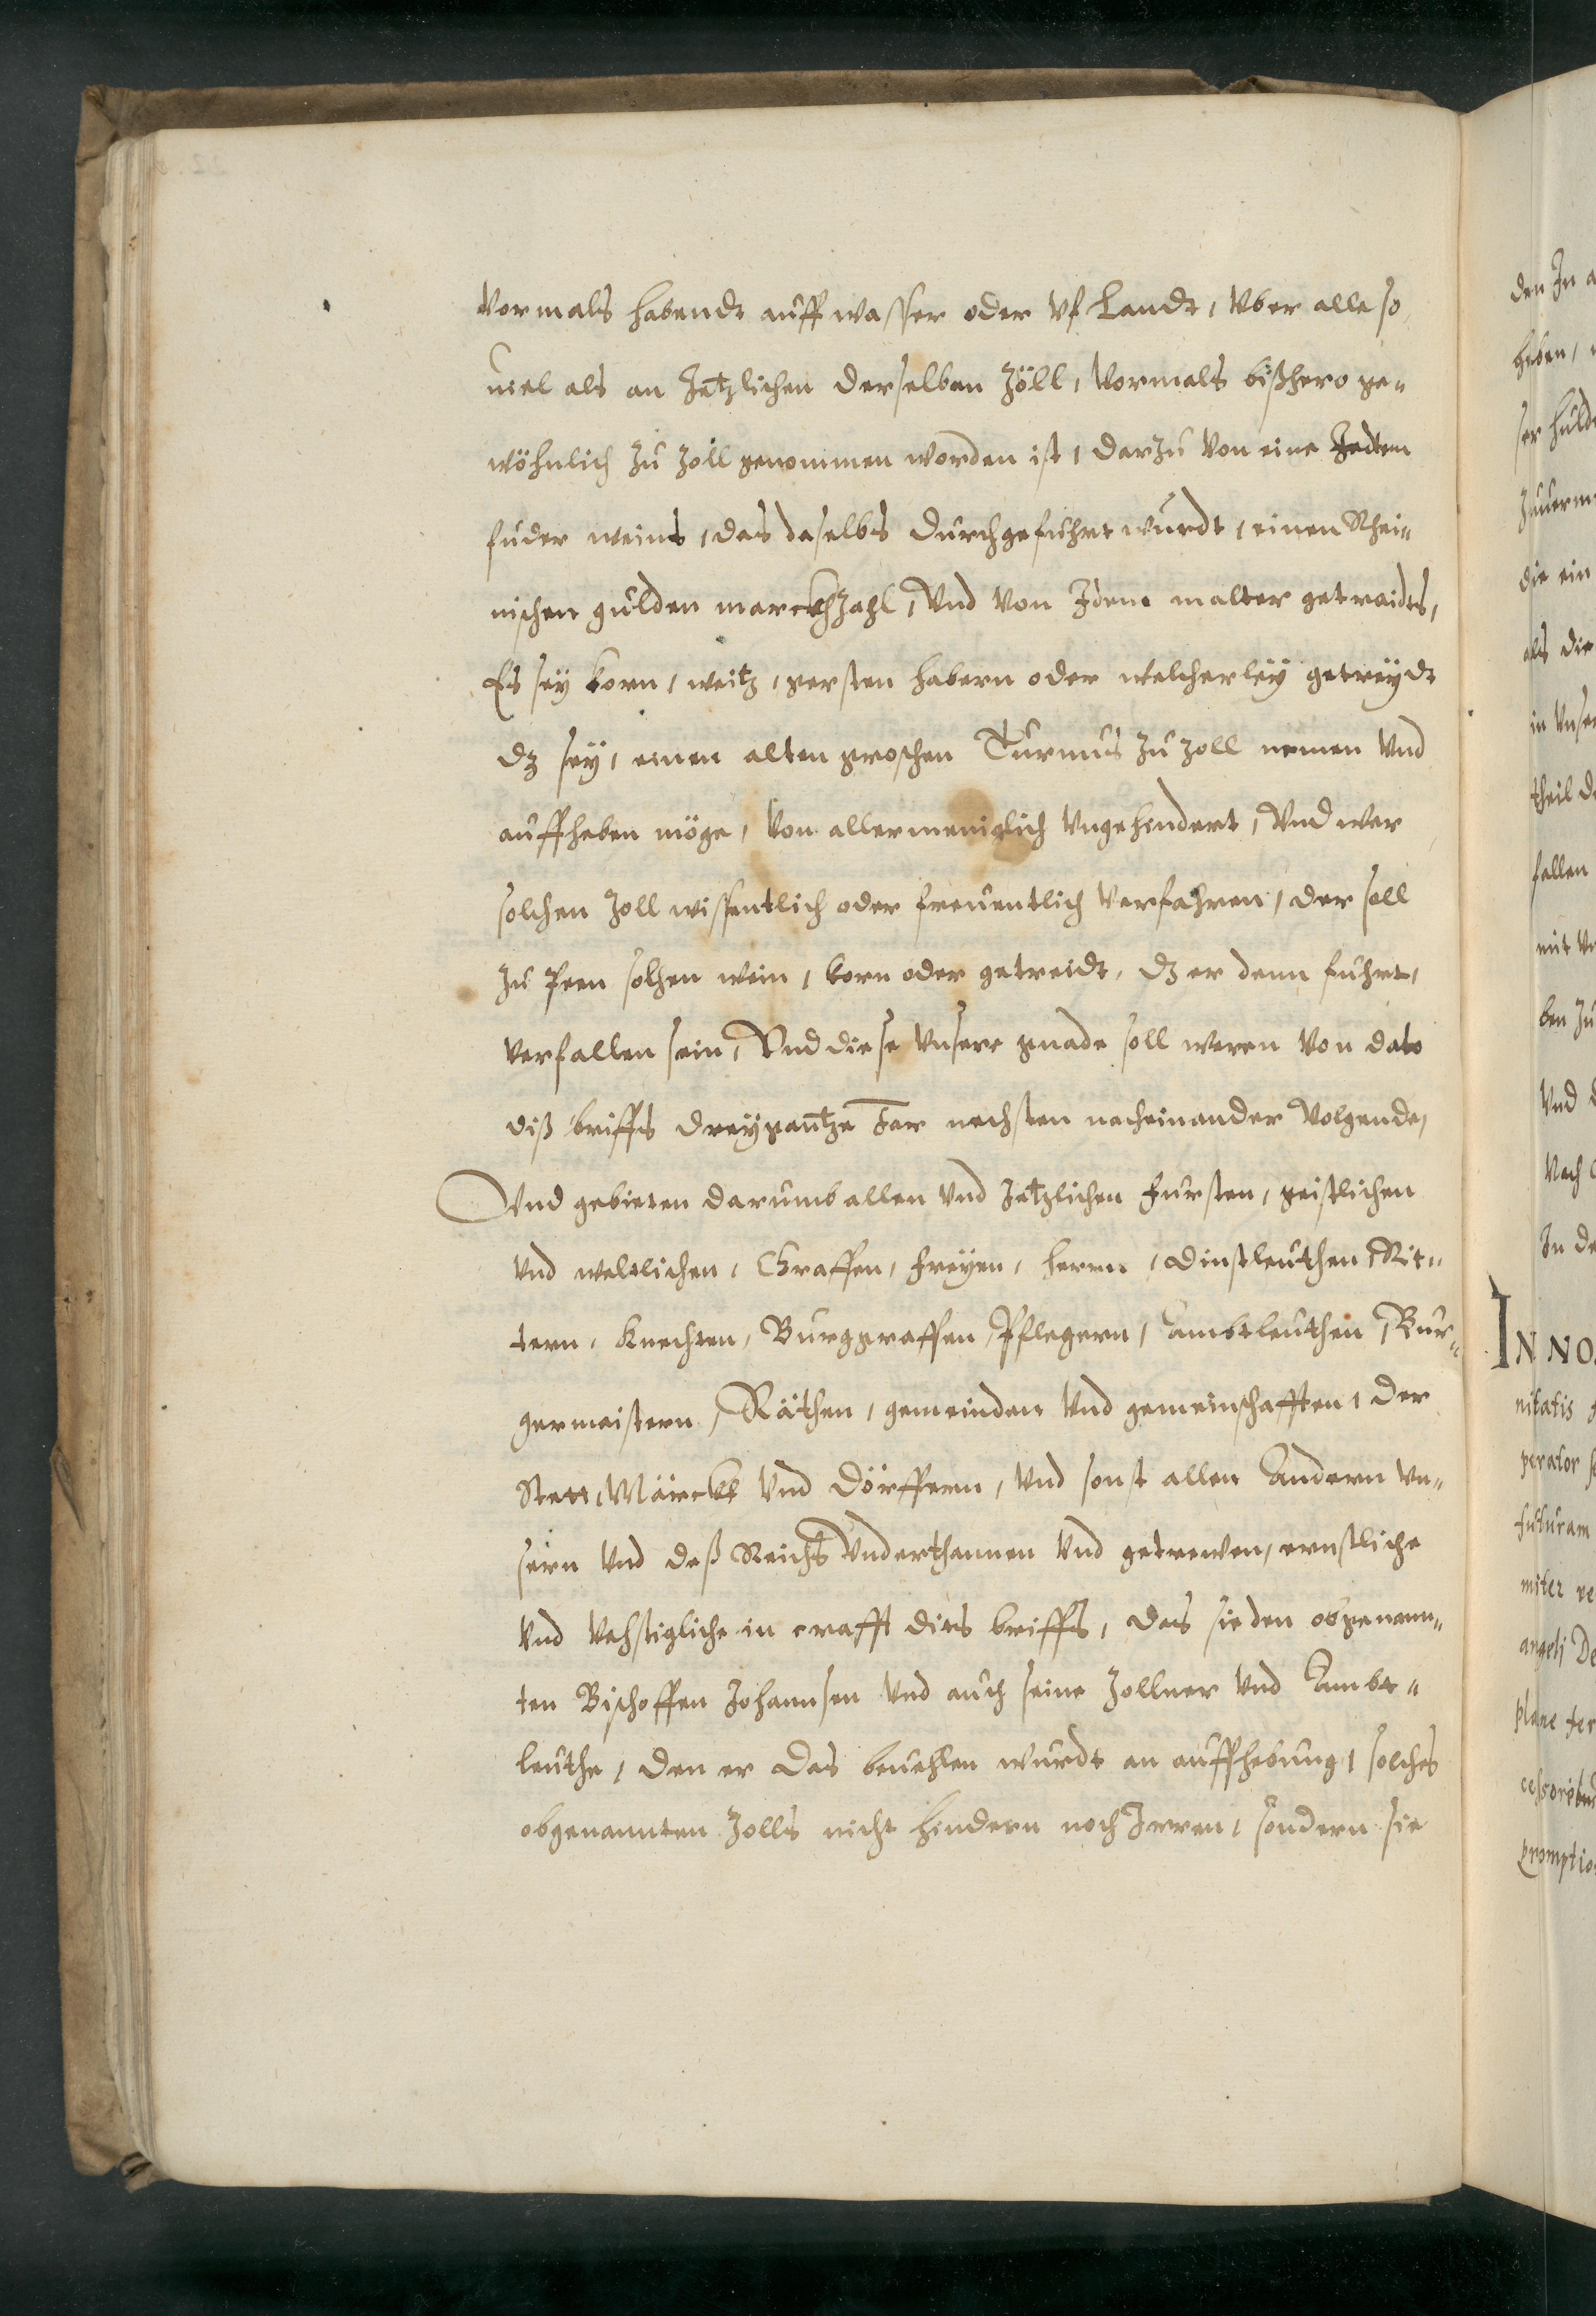 Vormals habendt auff wasser oder vf Landt, Vber alle so
uiel als an Jetzlichen derselben Zöll, Vormals bißhero ge„
wöhnlich zu Zoll genommen worden ist, darzu von eine Jedem
fuder weins, das daselbs durchgefuhrt wurdt, einen Rhei„
nischen gulden marckhzahl, Vnd von Jdem malter getraidts,
Es seÿ korn, weitz, gersten habern oder welcherleÿ getreÿdt
dz seÿ, einen alten groschen Turnus zu Zoll nemen Vnd
auffheben möge, Von allermeniglich Vngehindert, Vnd wer
solchen Zoll wissentlich oder freuentlich Verfahren, der soll
zu Peen solhen wein, korn oder getreidt, dz er denn fuhrt,
Verfallen sein, Vnd diese Vnsere gnade soll weren Von dato
diß briffs dreÿgantze Jar nechsten nacheinander Volgende,
Vnd gebieten darumb allen Vnd Jetzlichen Fursten, geistlichen
Vnd weltlichen, Graffen, Freÿen, herrn, dinstleuthen, Rit„
tern, Knechten, Burggraffen, Pflegern, Ambtleuthen, Bur„
germeistern, Räthen, gemeinden Vnd gemeinschafften, der
Stett, Märckt Vnd Dörffern, Vnd sonst allen Andern Vn„
sern Vnd deß Reichs Vnderthannen Vnd getrewen, ernstliche
Vnd Vehstigliche in crafft dits briffs, das sie den obgenann„
ten Bischoffen Johannsen Vnd auch seine Zollner Vnd Ambt„
leuthe, den er das beuehlen wurdt an auffhebung, solches
obgenannten Zolls nicht hindern noch Irren, sondern sie
den In
heben,
die ein
als die
theil
fallen
ben zu
Vnd
Nach
In de
IN NO
nitatis
perator
futuram
miter re
angeli De
plane ter
cessoribus
promptio